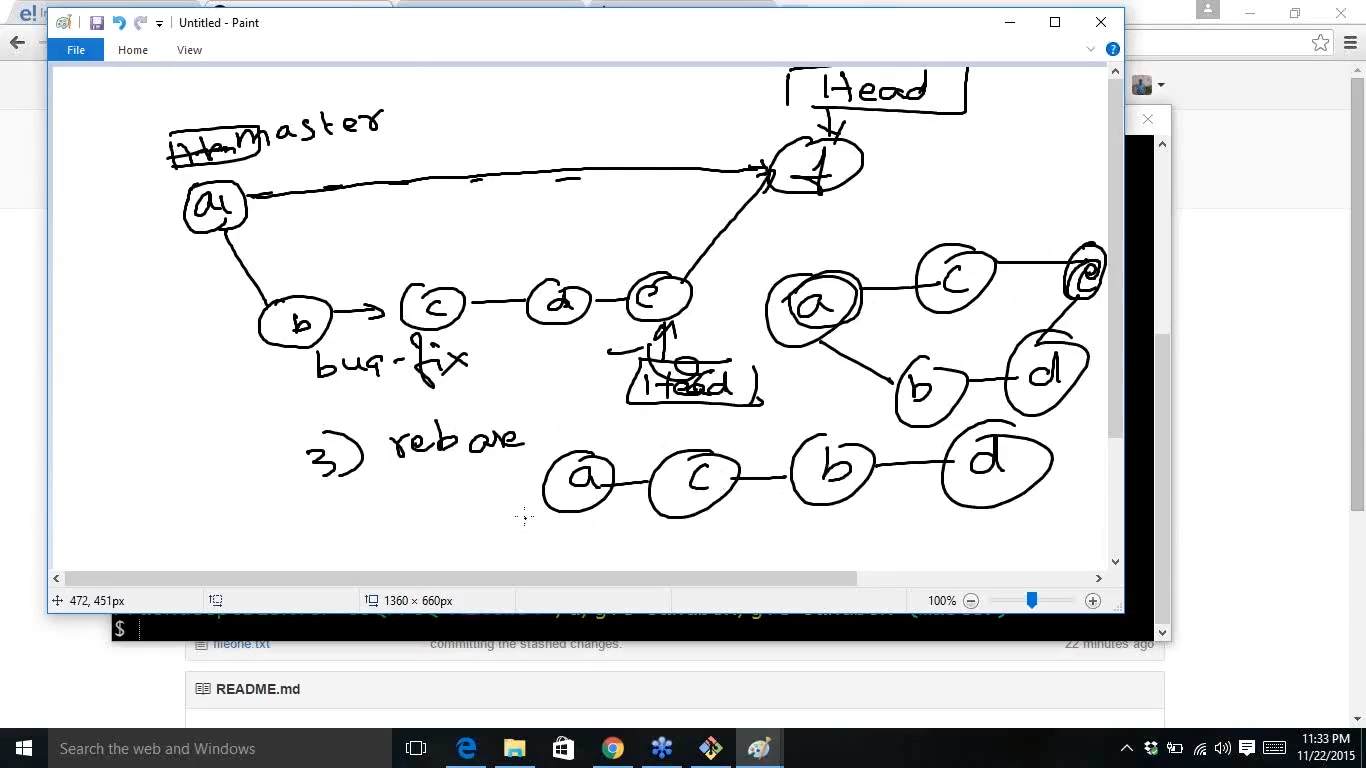 Untitled - Paint
File Home View
Head
master
a
f
a c e
b c d e
b d
bug-fix
Head
3) rebase
a c b d
472, 451px
1360 × 660px
100%
$
fileone.txt committing the stashed changes. 22 minutes ago
README.md
Search the web and Windows
11:33 PM
11/22/2015